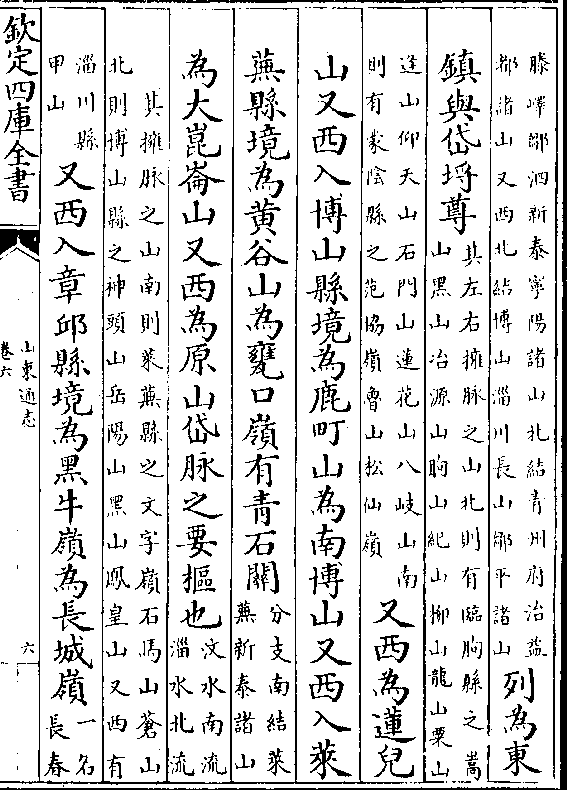 滕嶧鄒泗新泰寧陽諸山北結青州府治益
都諸山又西北結博山淄川長山鄒平諸山
列為東
鎮與岱埒尊
其左右擁脉之山北則有臨朐縣之嵩
山黑山冶源山朐山紀山柳山龍山粟山
逄山仰天山石門山蓮花山八岐山南
則有蒙陰縣之范脇嶺魯山松仙嶺
又西為蓮兒
山又西入博山縣境為鹿町山為南博山又西入萊
蕪縣境為黄谷山為甕口嶺有青石關
分支南結萊
蕪新泰諸山
為大崑崙山又西為原山岱脉之要樞也
汶水南流
淄水北流
其擁脉之山南則萊蕪縣之文字嶺石馬山蒼山
北則博山縣之神頭山岳陽山黑山鳳皇山又西有
淄川縣
甲山
又西入章邱縣境為黑牛嶺為長城嶺
一名
長春
欽定四庫全書
山東通志
卷六
六